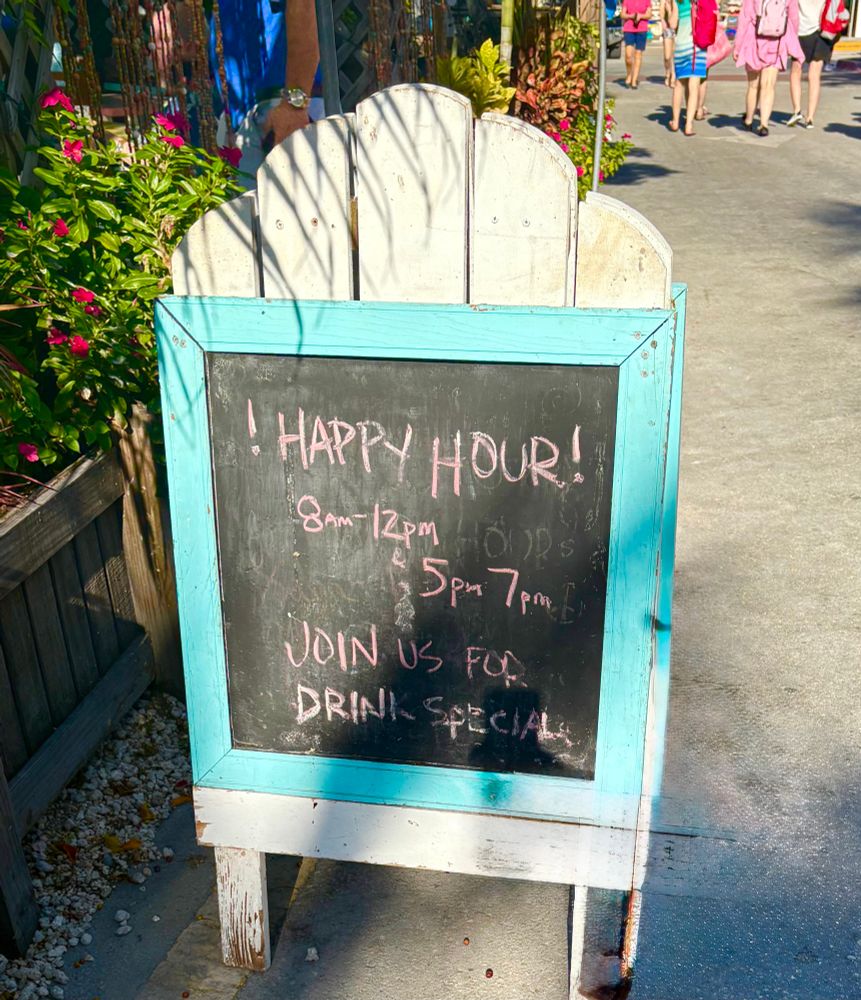 ! HAPPY HOUR!
8AM-12PM
&
5pm 7pm
JOIN US FOR
DRINK SPECIALS